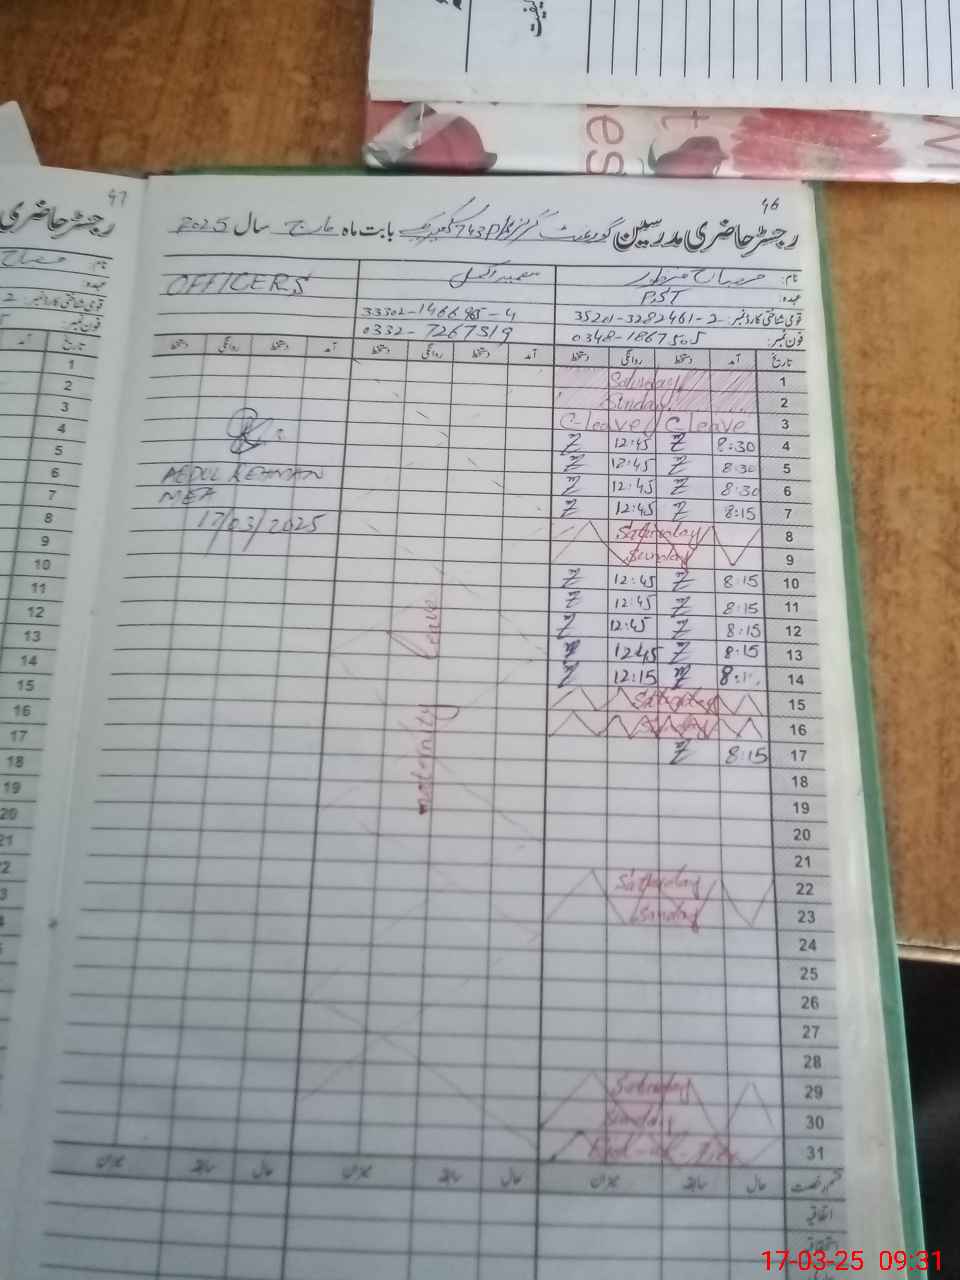 46
رجسٹر حاضری مدرسین گورنمنٹ بابت ماہ مارچ سال 2025
نام:
OFFICERS
عہدہ:
PST
قومی شناختی کارڈ نمبر: 35201-3282461-2
33302-1466985-4
فون نمبر: 0348-1867505
0332-7267519
تاریخ آمد دستخط روانگی دستخط آمد دستخط روانگی دستخط آمد دستخط روانگی دستخط
1 Saturday
2 Sunday
3 C leave C-leave
4 8:30 12:45
5 8:30 12:45
6 8:30 12:45
7 8:15 12:45
8 Saturday
9 Sunday
10 8:15 12:45
11 8:15 12:45
12 8:15 12:45
13 8:15 12:45
14 12:15
15 Saturday
16 Sunday
17 8:15
18
19
20
21
22 Saturday
23 Sunday
24
25
26
27
28
29 Saturday
30 Sunday
31
maternity leave
ABDUL REHMAN
MEA
17/03/2025
حال سابقہ میزان حال سابقہ میزان حال سابقہ میزان
اتفاقیہ
47
رجسٹر حاضری
نام:
عہدہ:
قومی شناختی کارڈ نمبر:
فون نمبر:
تاریخ
آمد
1
2
3
4
5
6
7
8
9
10
11
12
13
14
15
16
17
18
19
20
21
کیفیت
17-03-25 09:31